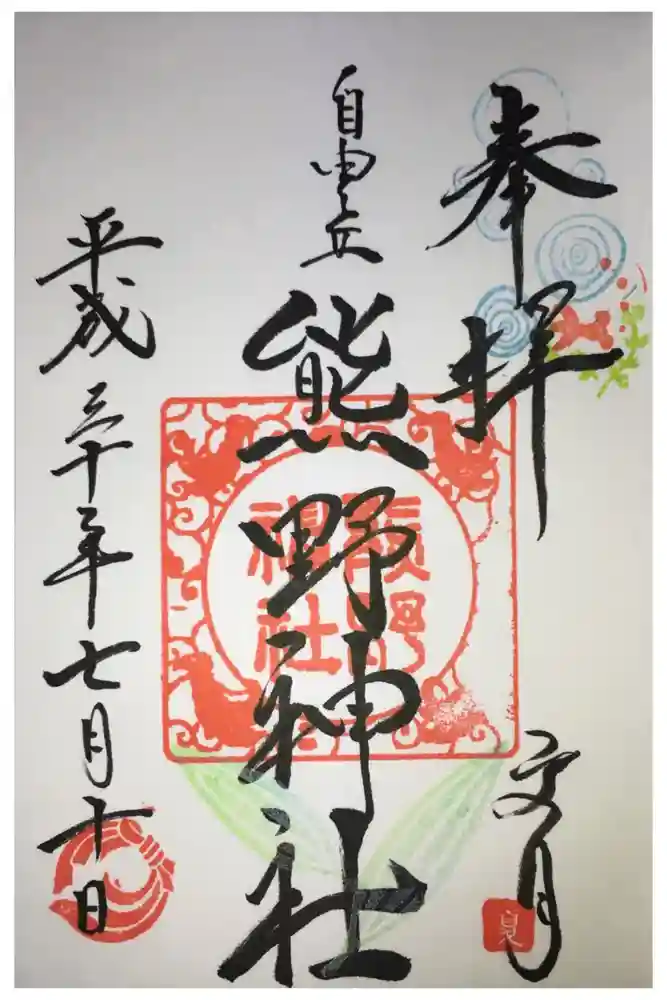 奉拝
文月
夏
自由が丘
熊野神社
熊野神社
平成三十年七月十日